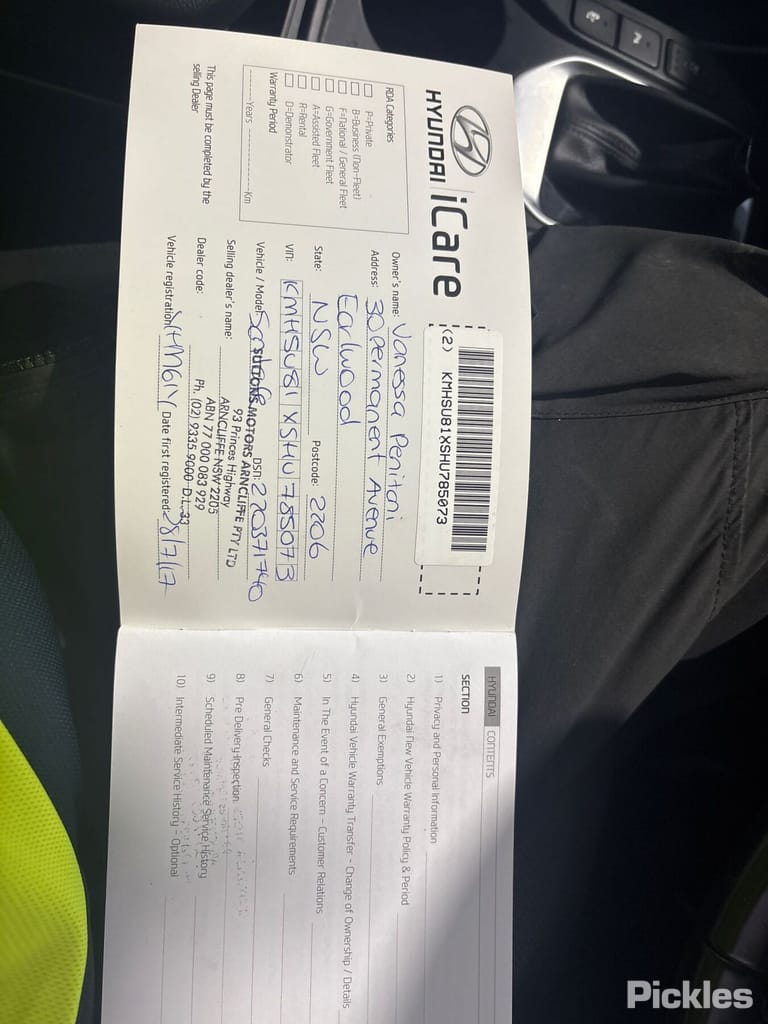 HYUNDAI | iCare
(2) KMHSU81XSHU785073
RDA Categories
P=Private
B=Business (Non-Fleet)
F=National / General Fleet
G=Government Fleet
A=Assisted Fleet
R=Rental
D=Demonstrator
Warranty Period
Years Km
This page must be completed by the
selling Dealer
Owner's name: Vanessa Penitoni
Address: 30 permanent Avenue
Earlwood
State: NSW Postcode: 2206
VIN: KMHSU81XSHU785073
Vehicle / Model: DSN: 220371740
Selling dealer's name:
SUTTONS MOTORS ARNCLIFFE PTY LTD
93 Princes Highway
ARNCLIFFE NSW 2205
ABN 77 000 083 929
Dealer code:
Ph. (02) 9335 9000 D.L.33
Vehicle registration: Date first registered: 28/7/17
HYUNDAI CONTENTS
SECTION
1) Privacy and Personal Information
2) Hyundai New Vehicle Warranty Policy & Period
3) General Exemptions
4) Hyundai Vehicle Warranty Transfer - Change of Ownership / Details
5) In The Event of a Concern - Customer Relations
6) Maintenance and Service Requirements
7) General Checks
8) Pre Delivery Inspection
9) Scheduled Maintenance Service History
10) Intermediate Service History - Optional
Pickles